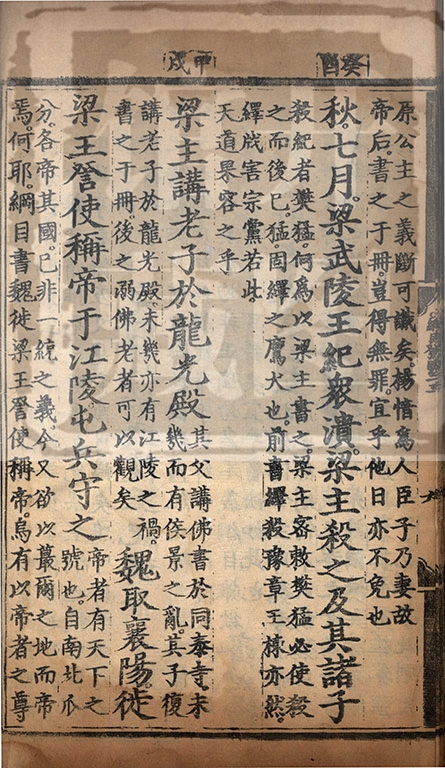 癸酉
原公主之義斷可識矣。楊愔為人臣子乃妻故
帝后。書之于冊。豈得無罪。宜乎他日亦不免也
秋。七月。梁武陵王紀衆潰。梁主殺之。及其諸子
殺紀者樊猛。何為以梁主書之。梁主密敕樊猛必使殺
之而後已。猛固繹之鷹犬也。前書繹殺豫章王棟亦然。
繹戕害宗黨若此
天道果容之乎
甲戌
梁主講老子於龍光殿
其父講佛書於同泰寺。未
幾而有侯景之亂。其子復
講老子於龍光殿。未幾亦有江陵之禍。
書之于冊。後之溺佛老者可以觀矣
魏取襄陽。徙
梁王詧使稱帝于江陵。屯兵守之
帝者有天下之
號也。自南北瓜
分各帝其國。已非一統之義。今又欲以蕞爾之地而帝
焉。何耶。綱目書魏徙梁王詧使稱帝。烏有以帝者之尊